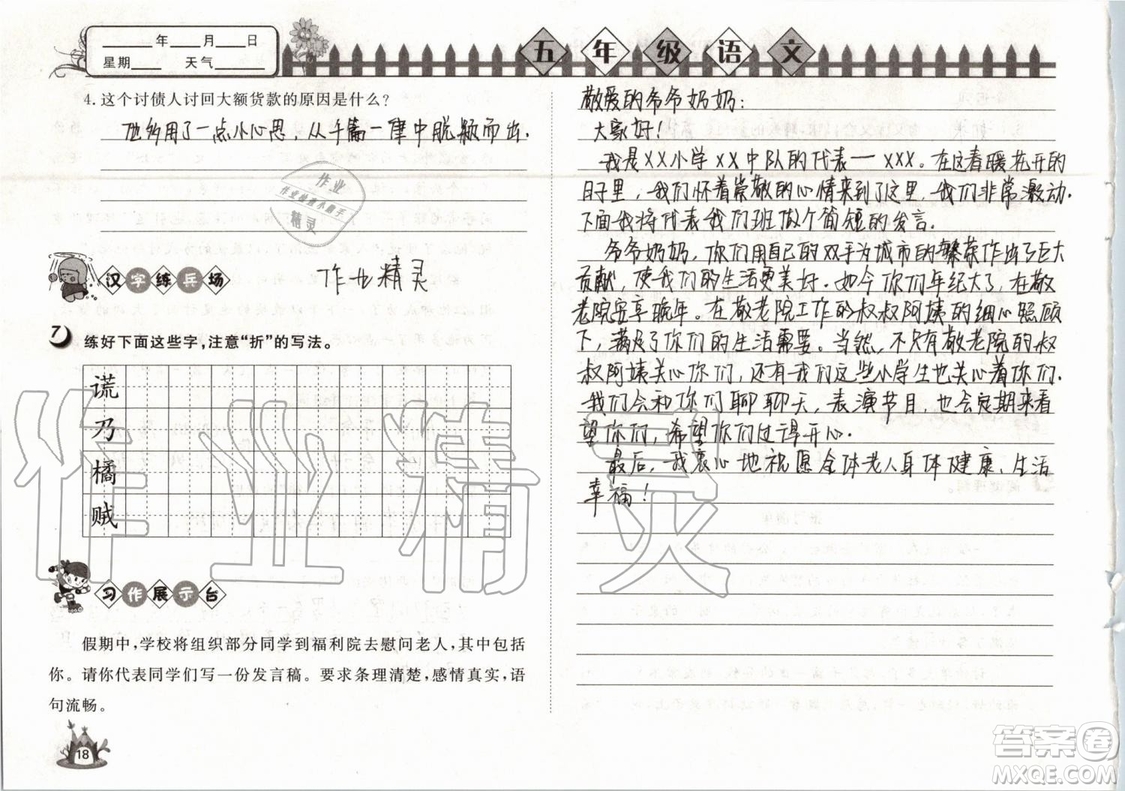 ____年____月____日
星期____ 天气________
五年级语文
4. 这个讨债人讨回大额货款的原因是什么?
他多用了一点小心思,从千篇一律中脱颖而出.
作业
作业精灵
精灵
汉字练兵场
作业精灵
7 练好下面这些字,注意“折”的写法。
谎
乃
橘
贼
作业精灵
习作展示台
假期中,学校将组织部分同学到福利院去慰问老人,其中包括
你。请你代表同学们写一份发言稿。要求条理清楚,感情真实,语
句流畅。
18
敬爱的爷爷奶奶:
大家好!
我是XX小学XX中队的代表一XXX。在这春暖花开的
日子里,我们怀着崇敬的心情来到了这里,我们非常激动.
下面我将代表我们班做个简短的发言.
爷爷奶奶,你们用自己的双手为城市的繁荣作出了巨大
贡献,使我们的生活更美好.如今你们年纪大了,在敬
老院安享晚年.在敬老院工作的叔叔阿姨的细心照顾
下,满足了你们的生活需要.当然,不只有敬老院的叔
叔阿姨关心你们,还有我们这些小学生也关心着你们.
我们会和你们聊聊天,表演节目,也会定期来看
望你们,希望你们过得开心.
最后,我衷心地祝愿全体老人身体健康、生活
幸福!
答案圈
MXQE.COM